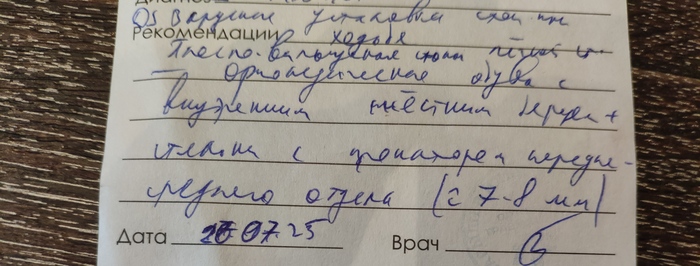 Диагноз
DS Варусная установка стоп при
Рекомендации ходьбе
Плоско-вальгусная стопа лёгкой ст
— Ортопедическая обувь с
внутренним жёстким берцем +
стельки с пронатором передне-
среднего отдела (≈ 7-8 мм)
Дата 26.07.25 Врач